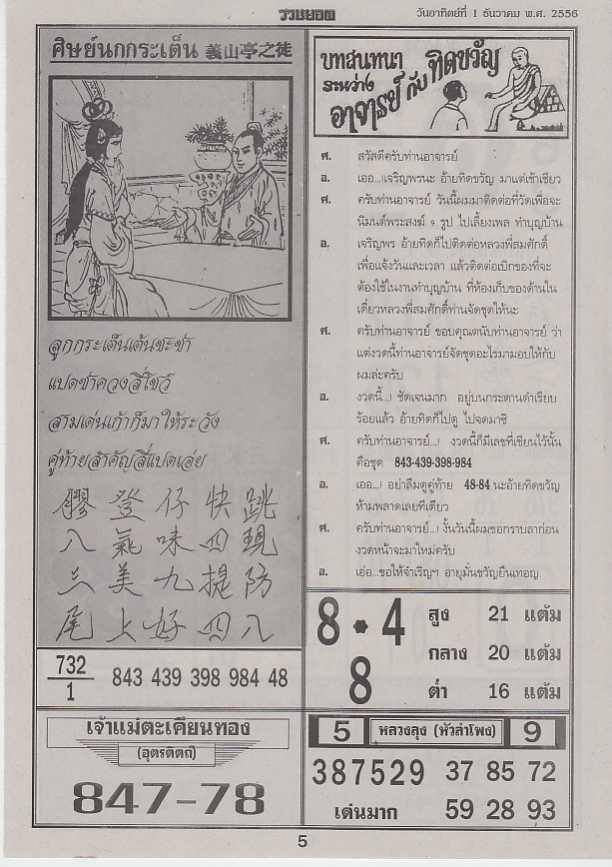 รวยยอด
วันอาทิตย์ที่ 1 ธันวาคม พ.ศ. 2556
ศิษย์นกกระเต็น 義山亭之徒
ลูกกระเต็นเต้นชะชา
แปดซาควงสี่โชว์
สามเด่นเก้าก็มาให้ระวัง
คู่ท้ายสำคัญสี่แปดเอ่ย
膠登仔快跳
八氣味四現
三美九提防
尾上好四八
732
1
843 439 398 984 48
เจ้าแม่ตะเคียนทอง
(อุตรดิตถ์)
847-78
บทสนทนา
ระหว่าง
อาจารย์ กับ ทิดขวัญ
ศ. สวัสดีครับท่านอาจารย์
อ. เออ...เจริญพรนะ อ้ายทิดขวัญ มาแต่เช้าเชียว
ศ. ครับท่านอาจารย์ วันนี้ผมมาติดต่อที่วัดเพื่อจะ
นิมนต์พระสงฆ์ ๑ รูป ไปเลี้ยงเพล ทำบุญบ้าน
อ. เจริญพร อ้ายทิดก็ไปติดต่อหลวงพี่สมศักดิ์
เพื่อแจ้งวันและเวลา แล้วติดต่อเบิกของที่จะ
ต้องใช้ในงานทำบุญบ้าน ที่ห้องเก็บของด้านใน
เดี๋ยวหลวงพี่สมศักดิ์ท่านจัดชุดให้นะ
ศ. ครับท่านอาจารย์ ขอบคุณครับท่านอาจารย์ ว่า
แต่งวดนี้ท่านอาจารย์จัดชุดอะไรมามอบให้กับ
ผมล่ะครับ
อ. งวดนี้...! ชัดเจนมาก อยู่บนกระดานดำเรียบ
ร้อยแล้ว อ้ายทิดก็ไปดู ไปจดมาซิ
ศ. ครับท่านอาจารย์...! งวดนี้ก็มีเลขที่เขียนไว้นั้น
คือชุด 843-439-398-984
อ. เออ...! อย่าลืมดูคู่ท้าย 48-84 นะอ้ายทิดขวัญ
ห้ามพลาดเลยทีเดียว
ศ. ครับท่านอาจารย์...! งั้นวันนี้ผมขอกราบลาก่อน
งวดหน้าจะมาใหม่ครับ
อ. เอ่อ...ขอให้จำเริญฯ อายุมั่นขวัญยืนเทอญ
8 • 4
8
สูง 21 แต้ม
กลาง 20 แต้ม
ต่ำ 16 แต้ม
5 หลวงลุง (หัวลำโพง) 9
387529 37 85 72
เด่นมาก 59 28 93
5